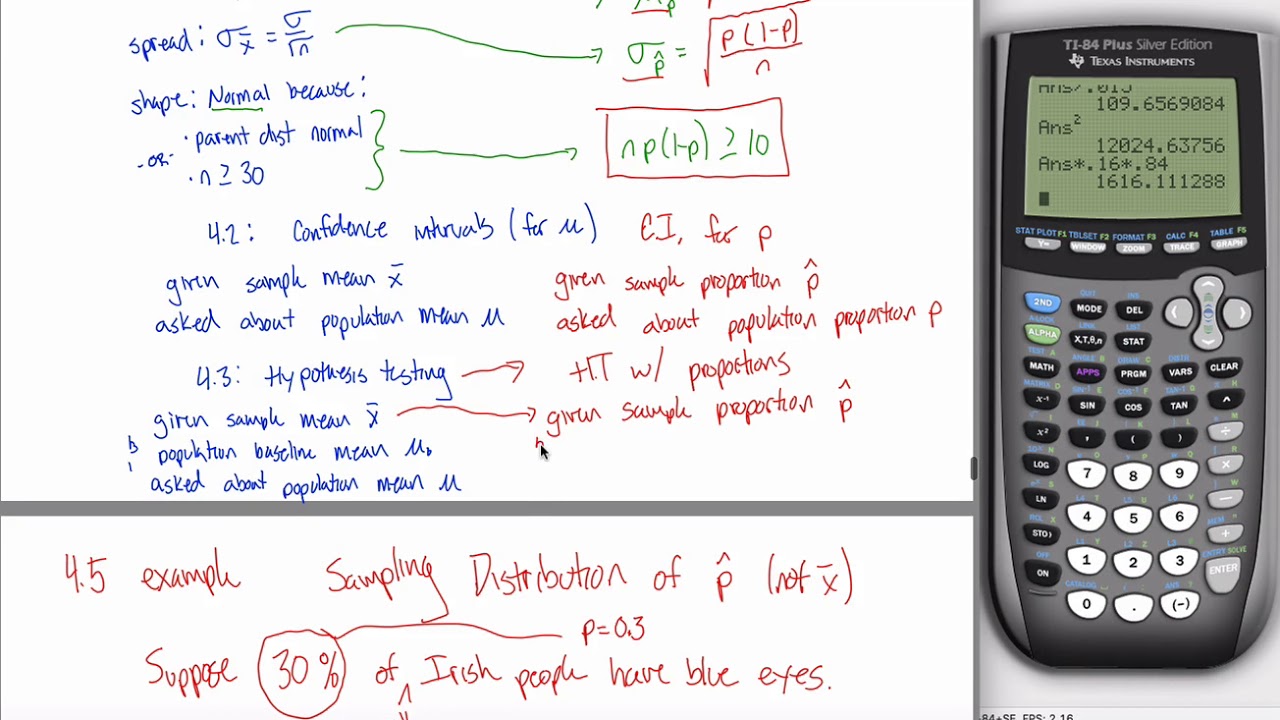 μp̂
spread: σx̄ = σ/√n
σp̂ = √(p(1-p)/n)
shape: Normal because:
· parent dist normal
-or-
· n ≥ 30
np(1-p) ≥ 10
4.2: Confidence intervals (for μ)
C.I. for p
given sample mean x̄
given sample proportion p̂
asked about population mean μ
asked about population proportion p
4.3: Hypothesis testing
HT w/ proportions
given sample mean x̄
given sample proportion p̂
population baseline mean μ₀
asked about population mean μ
4.5 example Sampling Distribution of p̂ (not x̄)
p=0.3
Suppose 30% of Irish people have blue eyes.
TI-84 Plus Silver Edition
TEXAS INSTRUMENTS
Ans/.015
109.6569084
Ans²
12024.63756
Ans*.16*.84
1616.111288
STAT PLOT F1 TBLSET F2 FORMAT F3 CALC F4 TABLE F5
Y= WINDOW ZOOM TRACE GRAPH
QUIT INS
2ND MODE DEL
A-LOCK LINK LIST
ALPHA X,T,θ,n STAT
TEST A ANGLE B DRAW C DISTR
MATH APPS PRGM VARS CLEAR
MATRIX D SIN⁻¹ E COS⁻¹ F TAN⁻¹ G π H
x⁻¹ SIN COS TAN ^
x² , ( ) ÷
LOG 7 8 9 ×
LN 4 5 6 −
RCL X
STO› 1 2 3 +
OFF CATALOG ANS ? ENTRY SOLVE
ON 0 . (-) ENTER
-84+SE, FPS: 2.16